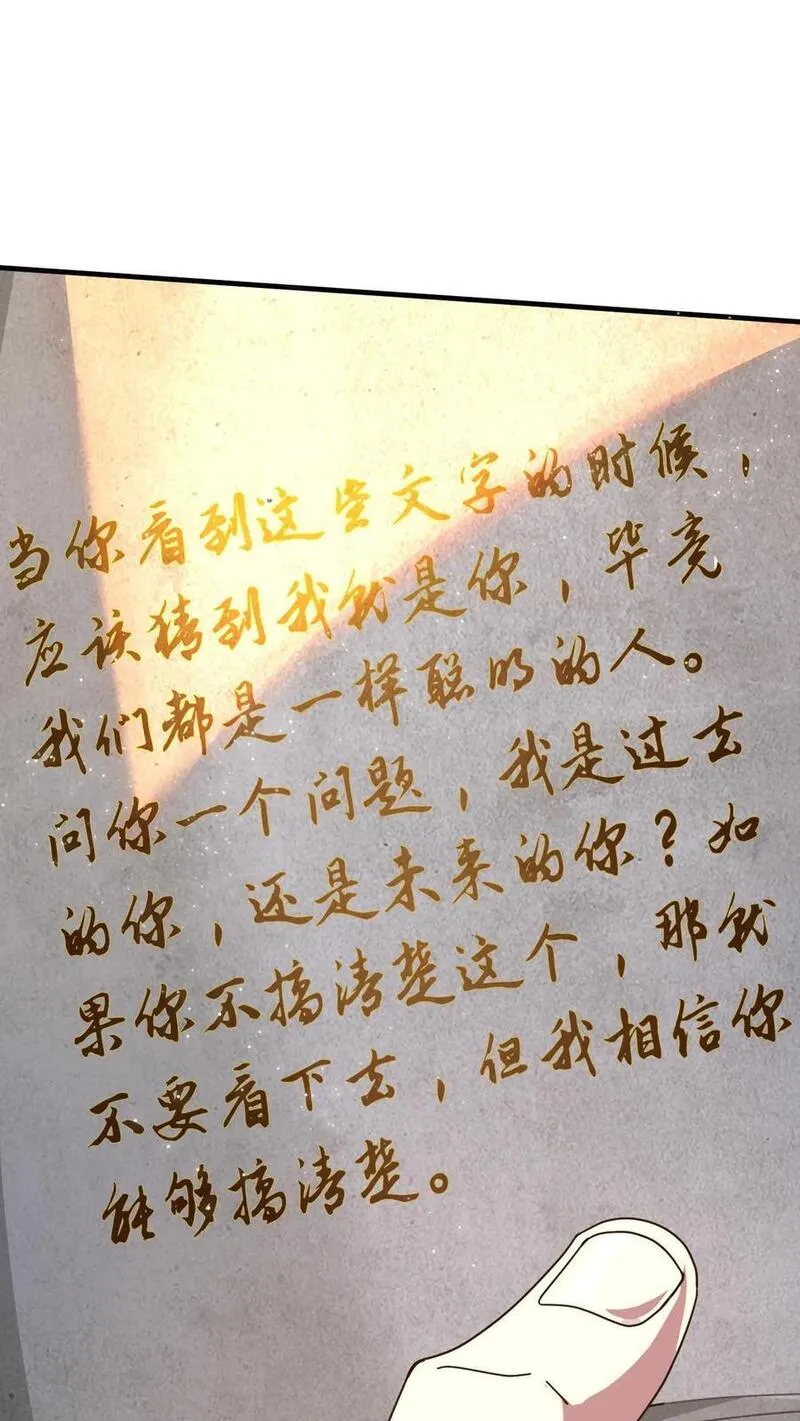 当你看到这些文字的时候，
应该猜到我就是你，毕竟
我们都是一样聪明的人。
问你一个问题，我是过去
的你，还是未来的你？如
果你不搞清楚这个，那就
不要看下去，但我相信你
能够搞清楚。